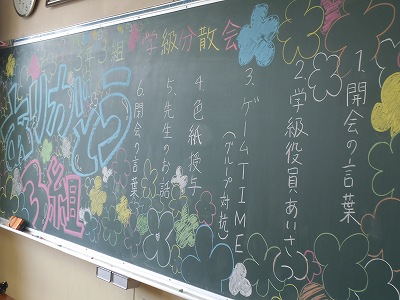 3年3組 学級分散会
1.開会の言葉
2.学級役員あいさつ
3.ゲームTIME
(グループ対抗)
4.色紙授与
5.先生のお話
6.閉会の言葉
ありがとう
3組